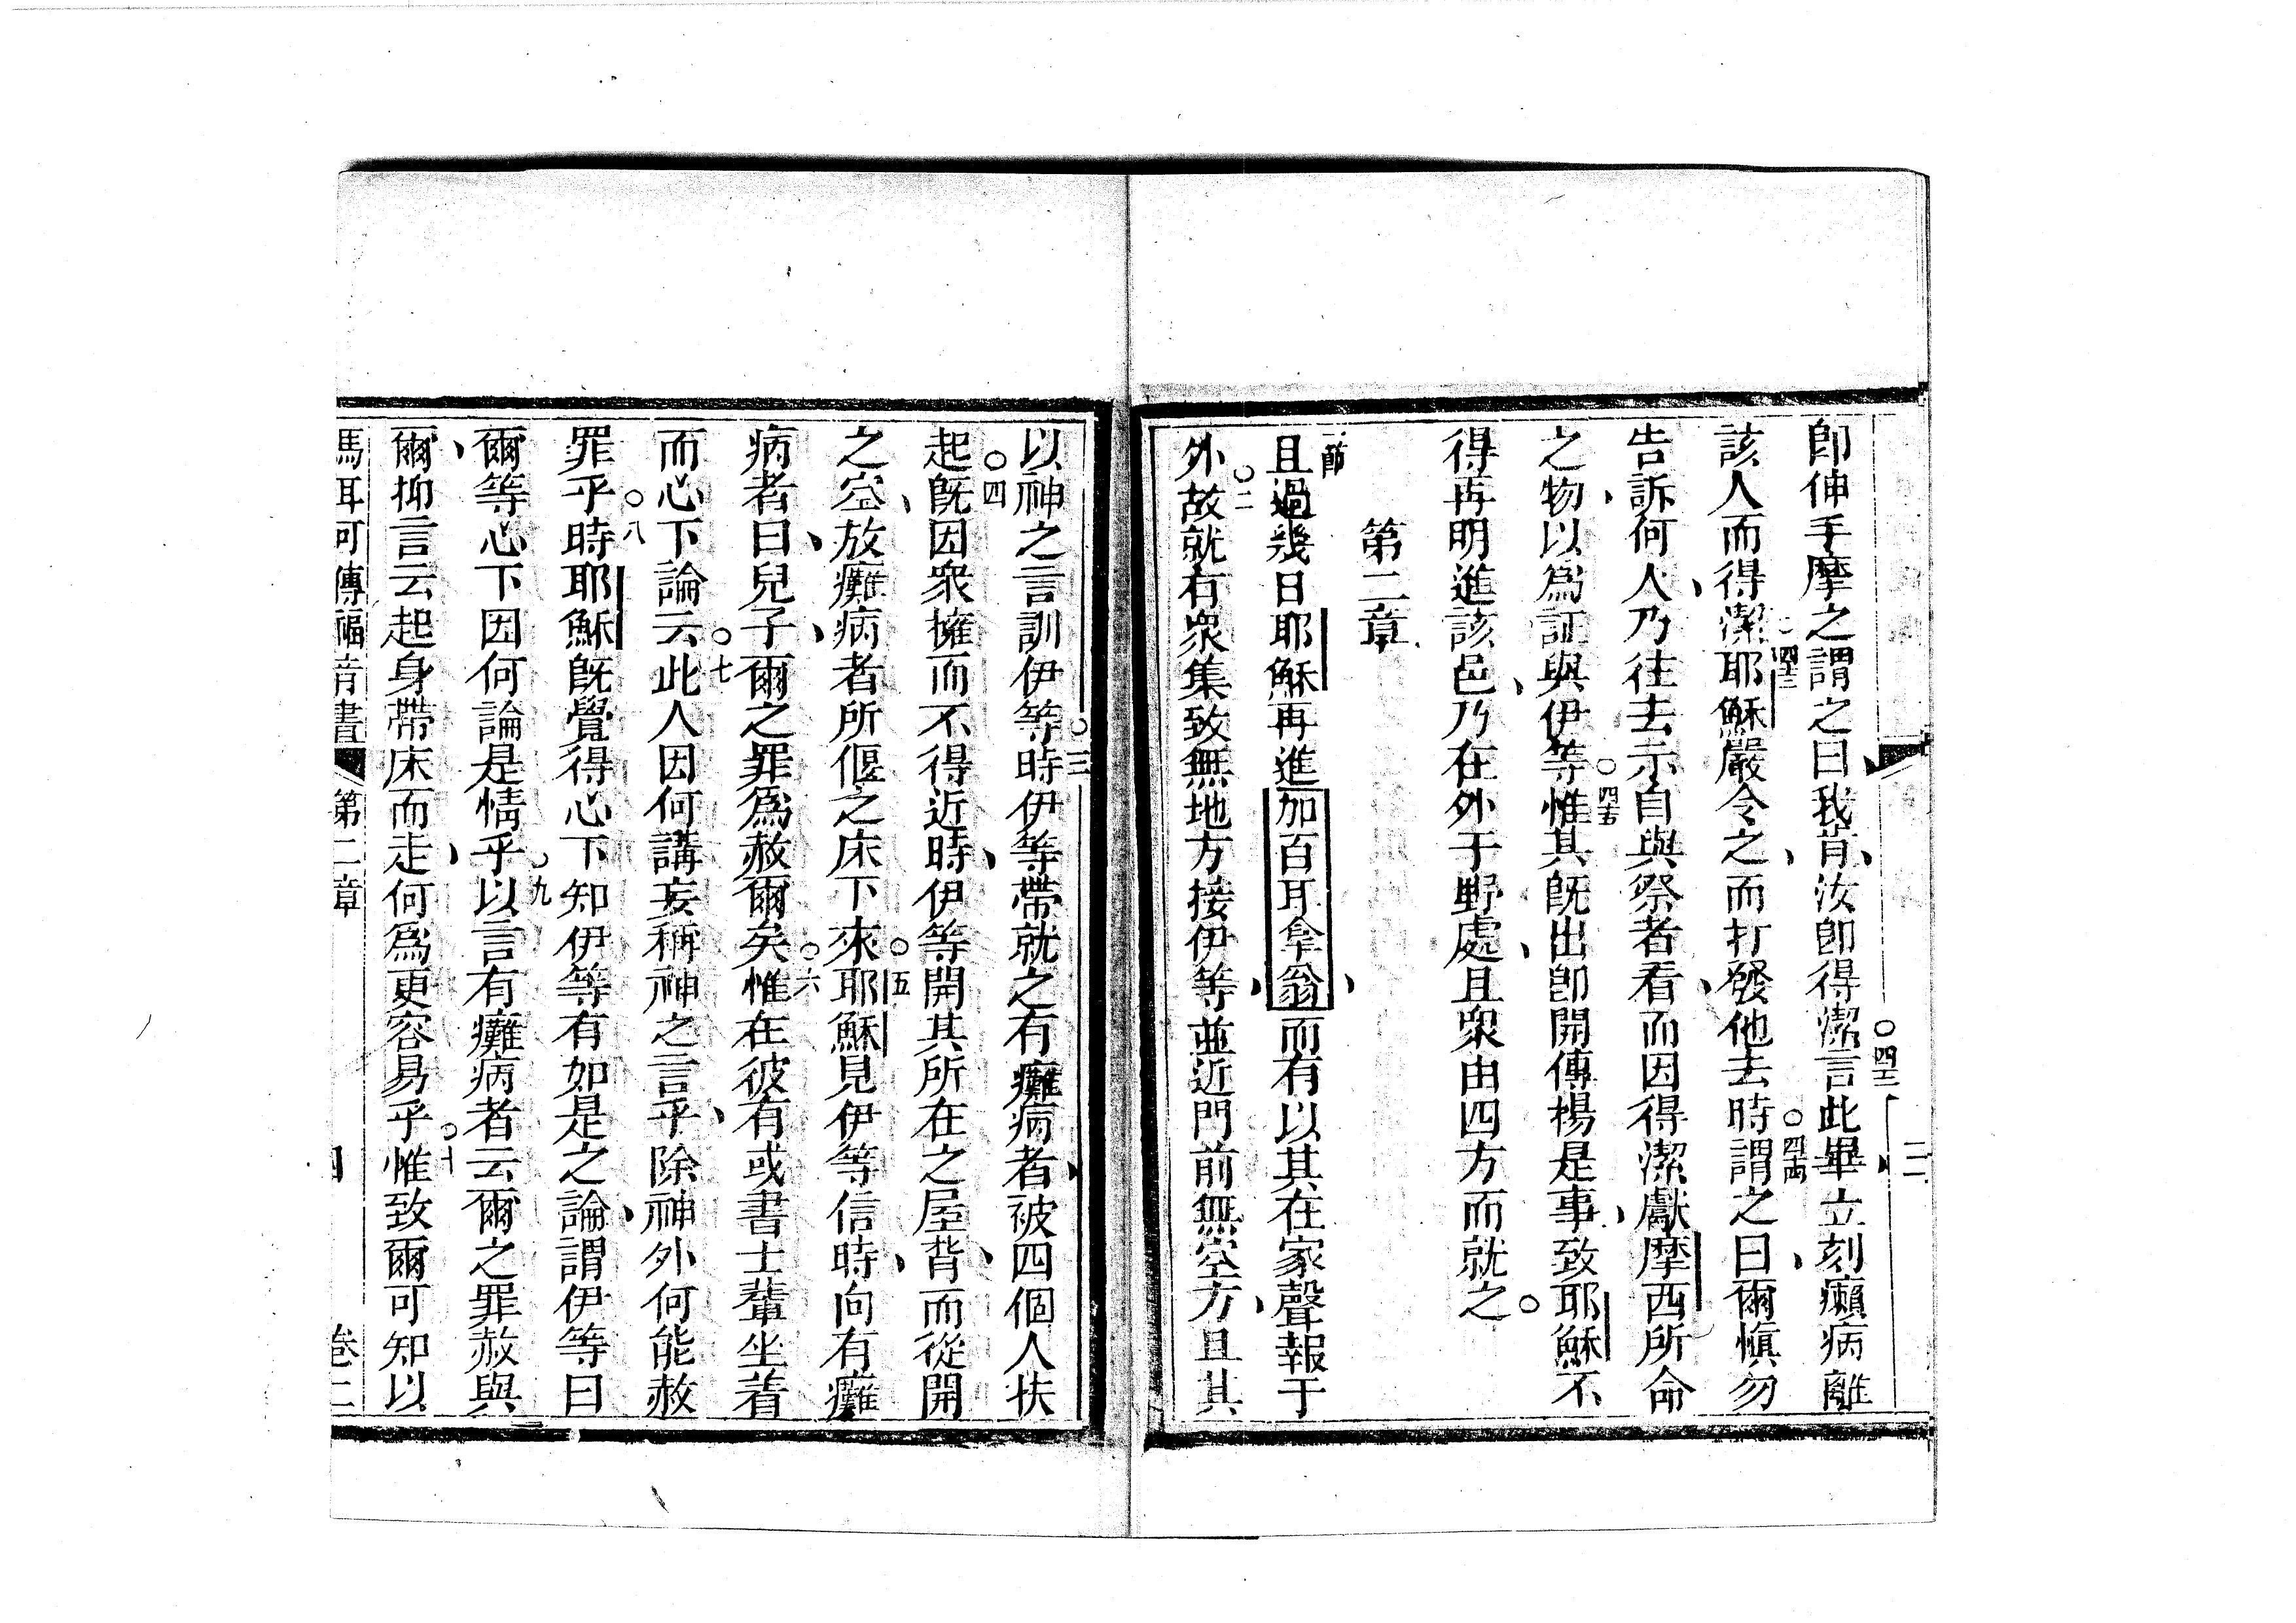 即伸手摩之謂之曰我肯汝即得潔○四二言此畢立刻癩病離
該人而得潔○四三耶穌嚴令之而打發他去○四四時謂之曰爾慎勿
告訴何人乃往去示自與祭者看而因得潔獻摩西所命
之物以為証與伊等○四五惟其既出即開傳揚是事致耶穌不
得再明進該邑乃在外于野處且眾由四方而就之○
第二章
一節且過幾日耶穌再進加百耳拿翁而有以其在家聲報于
外○二故就有眾集致無地方接伊等並近門前無空方且其
以神之言訓伊等○三時伊等帶就之有癱病者被四個人扶
起○四既因眾擁而不得近時伊等開其所在之屋背而從開
之空放癱病者所偃之床下來○五耶穌見伊等信時向有癱
病者曰兒子爾之罪為赦爾矣○六惟在彼有或書士輩坐着
而心下論云○七此人因何講妄稱神之言乎除神外何能赦
罪乎○八時耶穌既覺得心下知伊等有如是之論謂伊等曰
爾等心下因何論是情乎○九以言有癱病者云爾之罪赦與
爾抑言云起身帶床而走何為更容易乎○十惟致爾可知以
馬耳可傳福音書 第二章 四 卷二